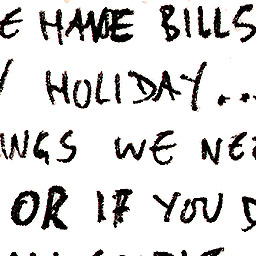 E HAVE BILLS
Y HOLIDAY...
INGS WE NEE
OR IF YOU D